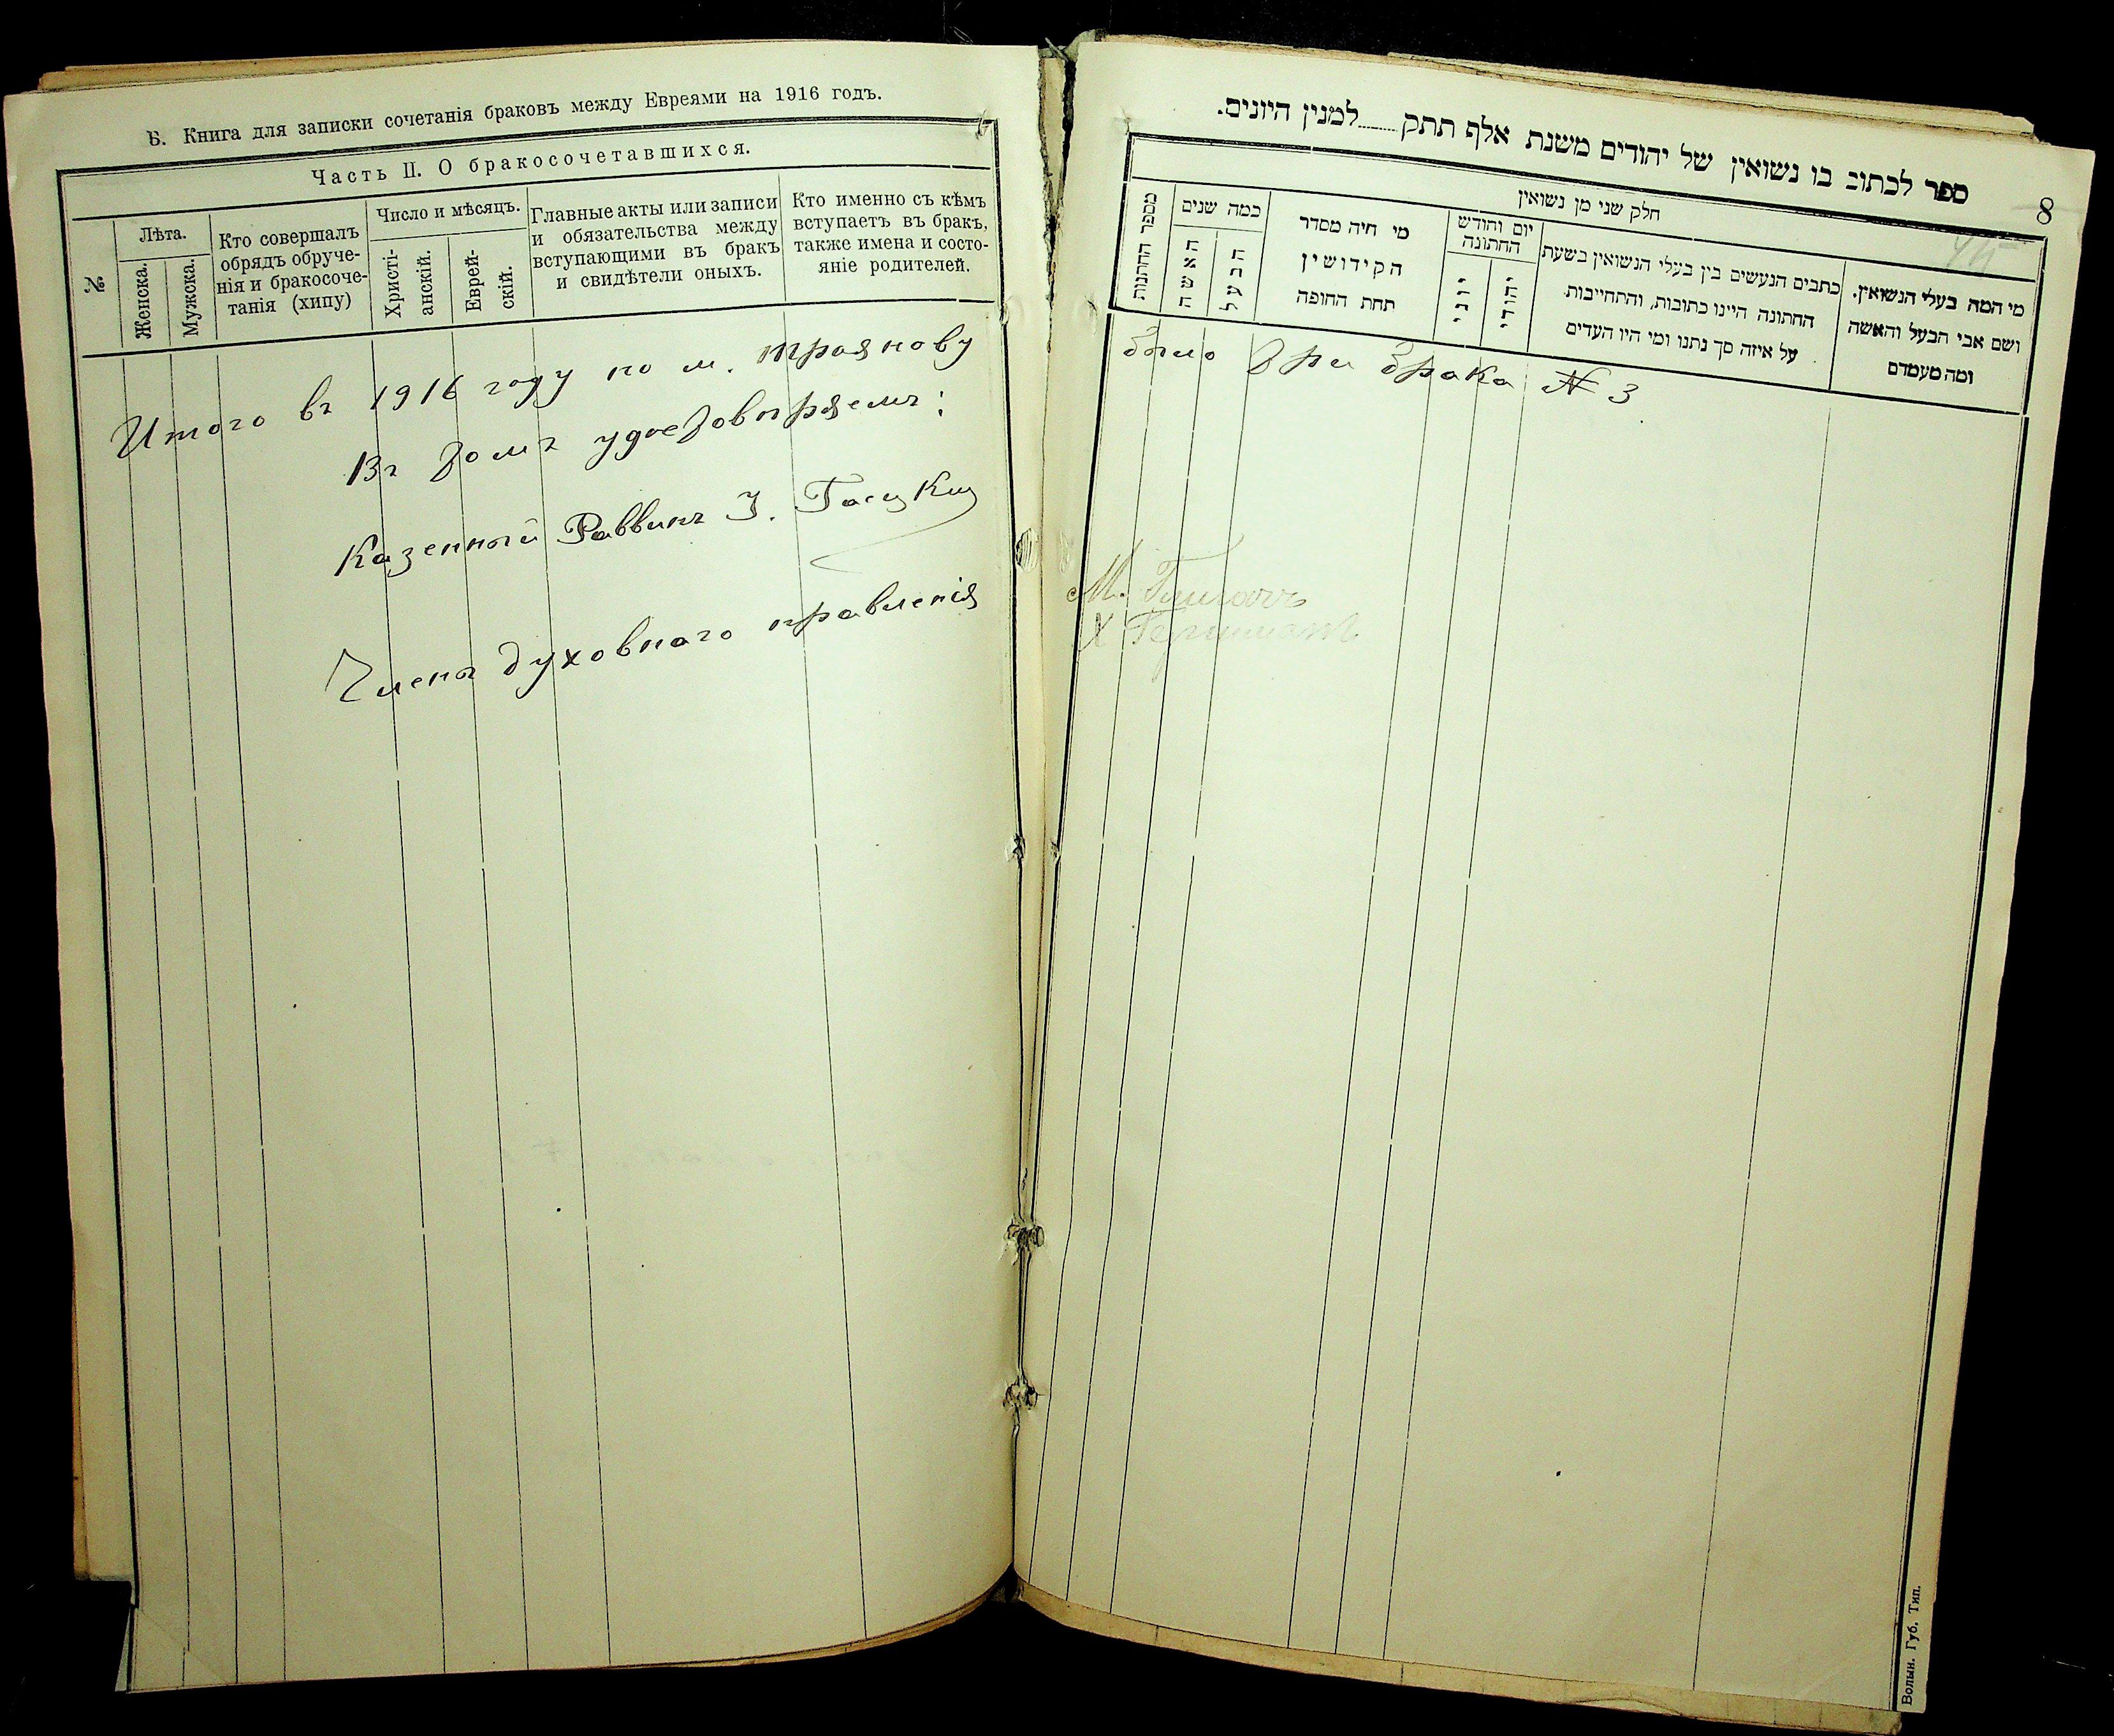 Б. Книга для записки сочетанія браковъ между Евреями на 1916 годъ.
Часть II. О бракосочетавшихся.
№
Лѣта.
Женска.
Мужска.
Кто совершалъ
обрядъ обруче-
нія и бракосоче-
танія (хипу)
Число и мѣсяцъ.
Христі-
анскій.
Еврей-
скій.
Главные акты или записи
и обязательства между
вступающими въ бракъ
и свидѣтели оныхъ.
Кто именно съ кѣмъ
вступаетъ въ бракъ,
также имена и состо-
яніе родителей.
Итого въ 1916 году по м. Траянову
Въ томъ удостовѣряемъ:
Казенный Раввинъ
Члены духовнаго правленія
ספר לכתוב בו נשואין של יהודים משנת אלף תתק......למנין היונים.
8
חלק שני מן נשואין
מספר החתונות
כמה שנים
האשה
הבעל
מי חיה מסדר
הקידושין
תחת החופה
יום וחודש
החתונה
יוני
יהודי
כתבים הנעשים בין בעלי הנשואין בשעת
החתונה היינו כתובות, והתחייבות
על איזה סך נתנו ומי היו העדים
מי המה בעלי הנשואין.
ושם אבי הבעל והאשה
ומה מעמדם
было три брака № 3
Волын. Губ. Тип.